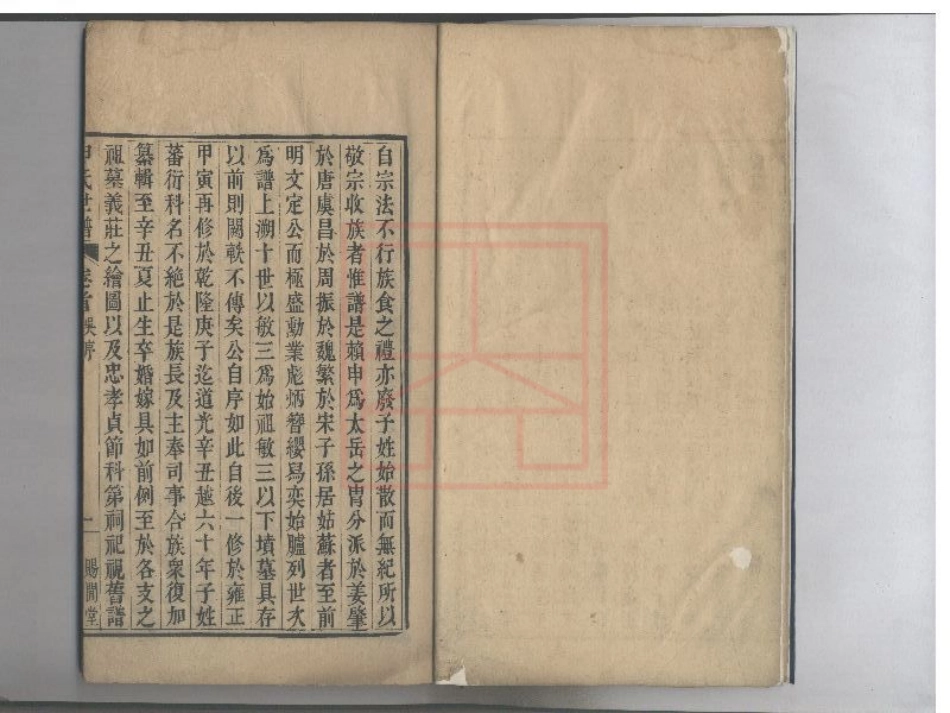 自宗法不行族食之禮亦廢子姓始散而無紀所以
敬宗收族者惟譜是賴申爲太岳之胄分派於姜肇
於唐虞昌於周振於魏繁於宋子孫居姑蘇者至前
明文定公而極盛勳業彪炳簪纓舄奕始臚列世次
爲譜上溯十世以敏三爲始祖敏三以下墳墓具存
以前則闕軼不傳矣公自序如此自後一修於雍正
甲寅再修於乾隆庚子迄道光辛丑越六十年子姓
蕃衍科名不絕於是族長及主奉司事合族衆復加
纂輯至辛丑夏止生卒婚嫁具如前例至於各支之
祖墓義莊之繪圖以及忠孝貞節科第祠祀視舊譜
申氏世譜 卷首 序 一 賜閒堂